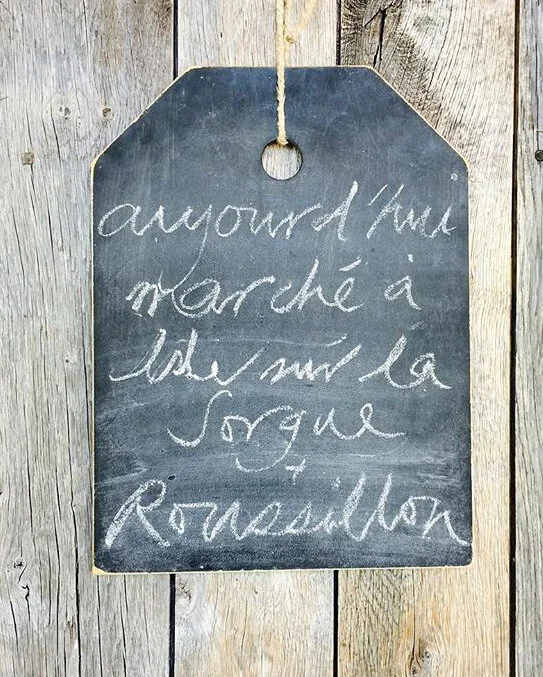 aujourd'hui
marché à
Isle sur la
Sorgue
+
Roussillon